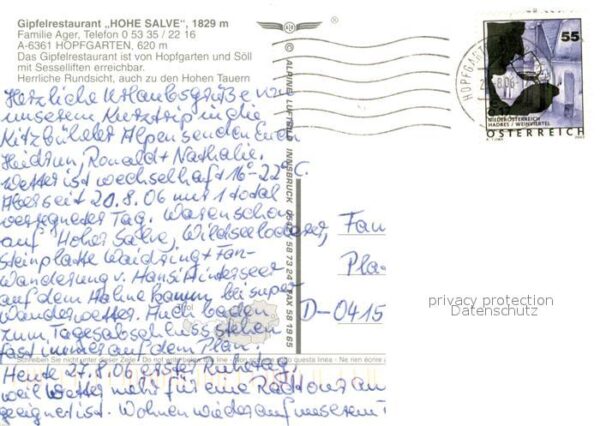 Gipfelrestaurant „HOHE SALVE", 1829 m
Familie Ager, Telefon 0 53 35 / 22 16
A-6361 HOPFGARTEN, 620 m
Das Gipfelrestaurant ist von Hopfgarten und Söll
mit Sesselliften erreichbar.
Herrliche Rundsicht, auch zu den Hohen Tauern
Herzliche Urlaubsgrüße von
unserem Kurztrip in die
Kitzbühler Alpen senden Euch
Heidrun, Ronald + Nathalie.
Wetter ist wechselhaft 16-22°C.
Aber seit 20.8.06 nur 1 total
verregneter Tag. Waren schon
auf Hoher Salve, Wildseeloderer,
Steinplatte Waidring + Fan-
Wanderung v. Hansi Hinterseer
auf dem Hahnenkamm bei super
Wanderwetter. Auch baden
zum Tagesabschluss stehen
fast immer auf dem Plan.
Schreiben Sie nicht unter dieser Zeile - Do not write below this line - non questa linea - Ne rien écrire
Heute 27.8.06 erster Ruhetag,
weil Wetter mehr für eine Radtour
geeignet ist. Wohnen wieder auf unserem
© ALPINE LUFTBILD INNSBRUCK
FAX 58 19 85
HOPFGARTEN
8.06
55
NIEDERÖSTERREICH
HADRES / WEINVIERTEL
ÖSTERREICH
Fam
Pla
D-0415
privacy protection
Datenschutz